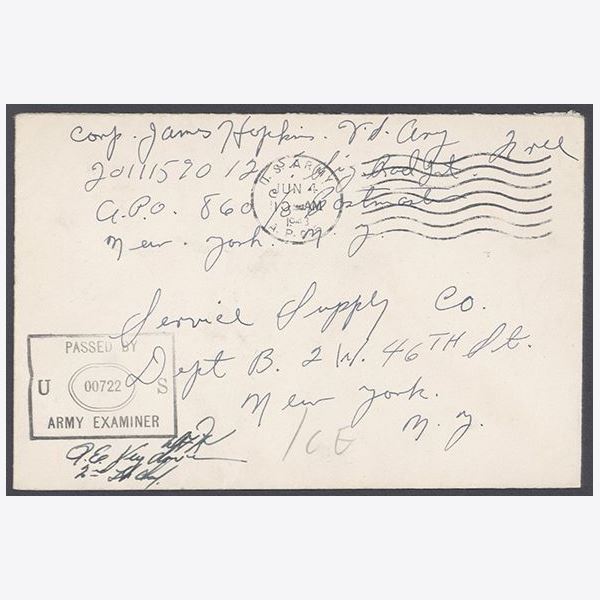 Corp. James Hopkins. Free
20111590 12
A.P.O. 860 % Postmaster
New. York. N. Y.
U.S. ARMY
JUN 4
AM
1943
A.P.O.
Service Supply Co.
Dept B. 2 W. 46TH St.
New York.
N. Y.
PASSED BY
U 00722 S
ARMY EXAMINER
2nd Lt